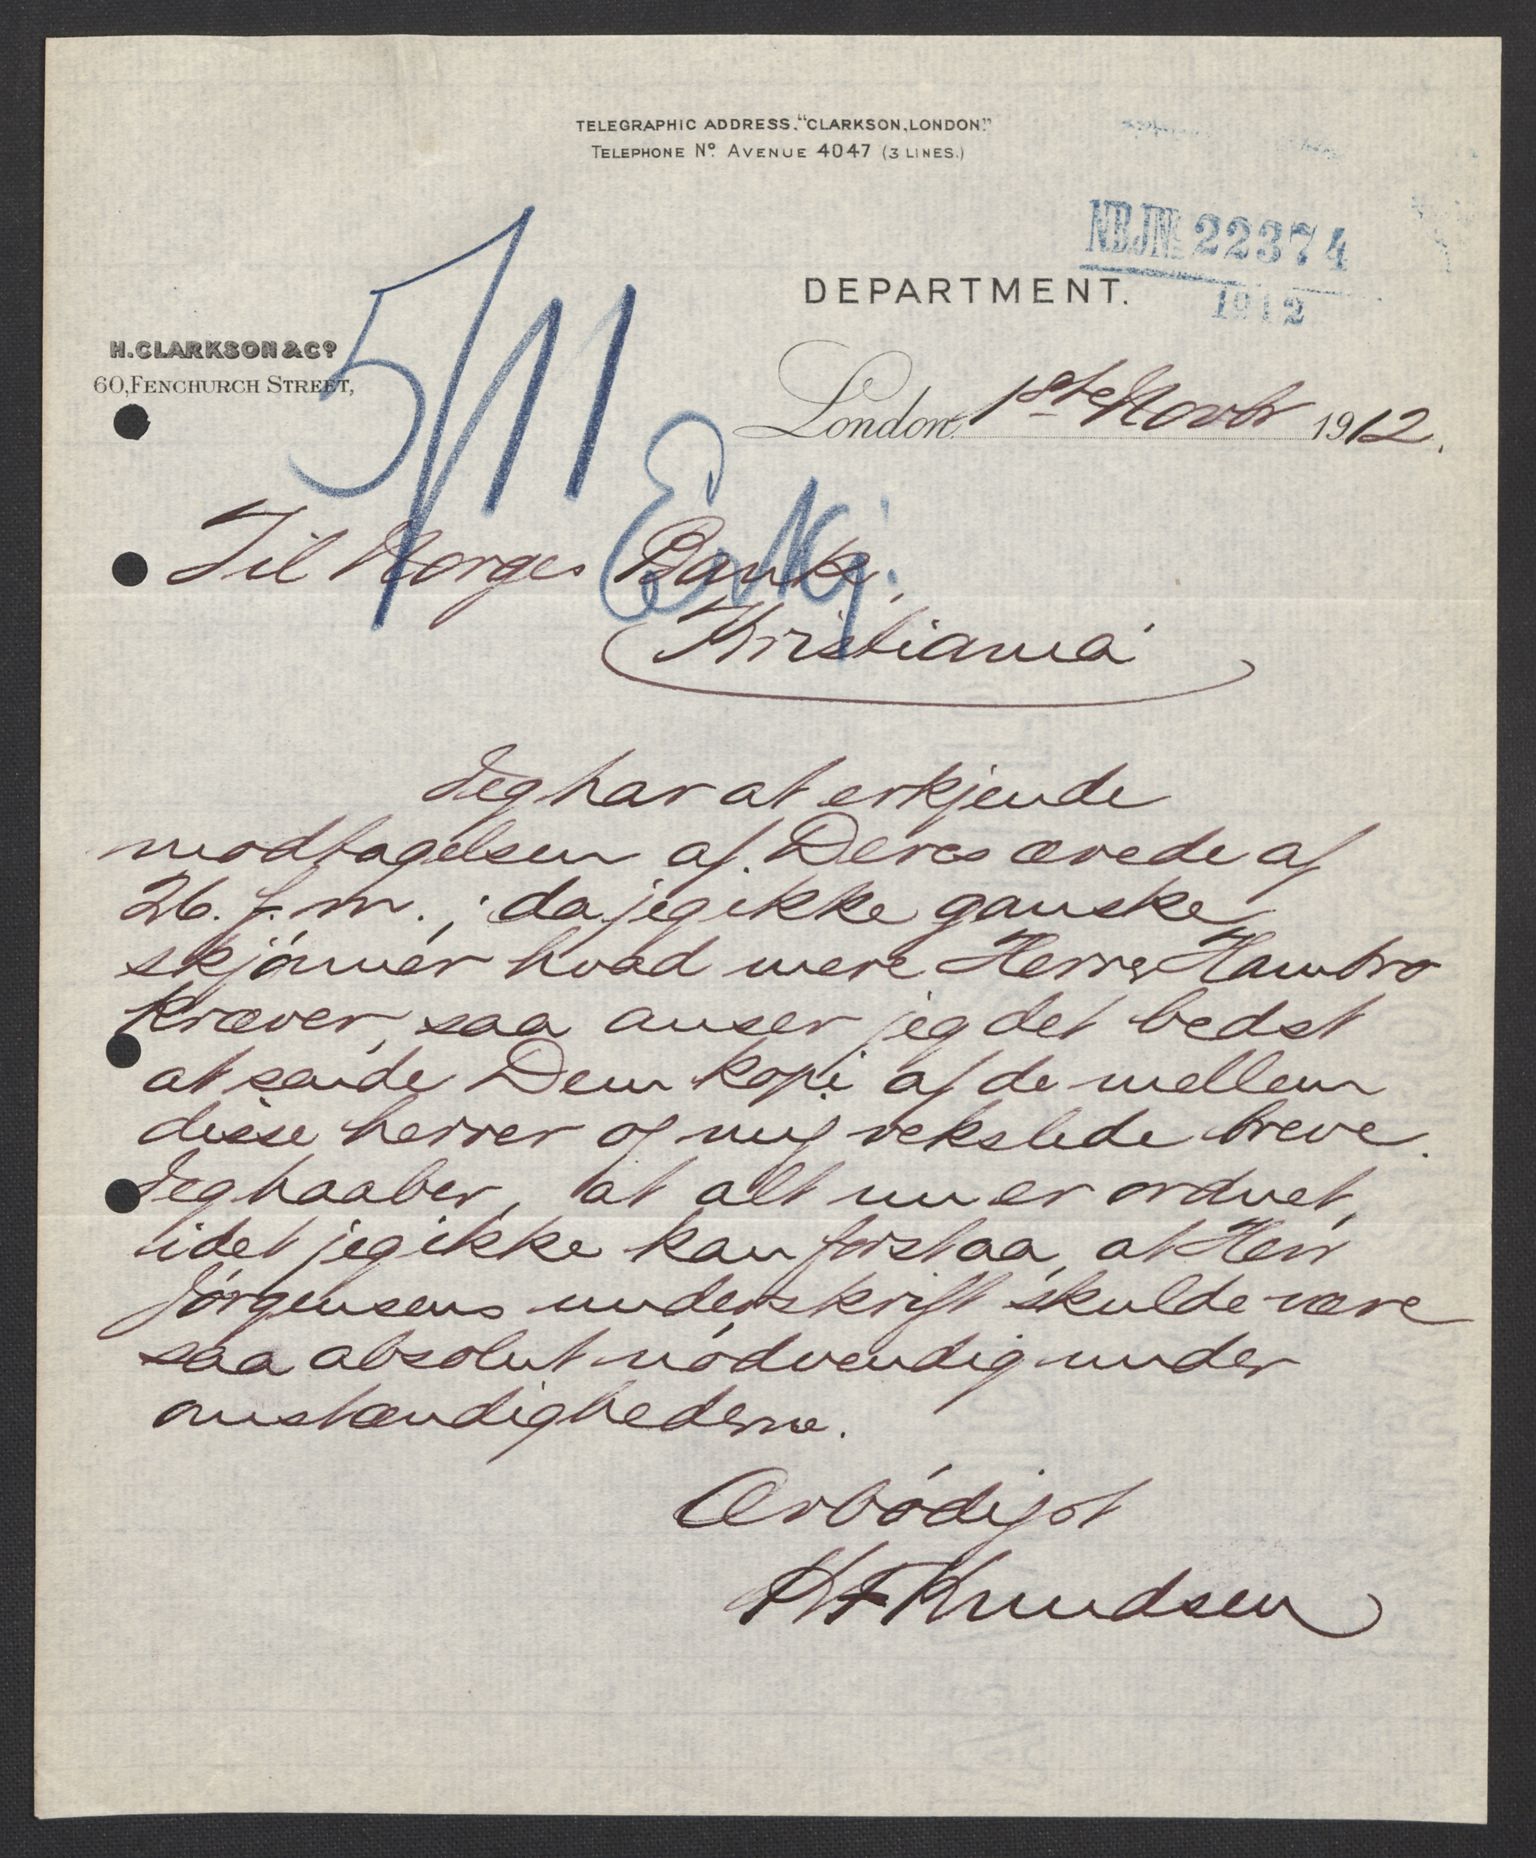 TELEGRAPHIC ADDRESS, "CLARKSON, LONDON."
TELEPHONE Nº AVENUE 4047 (3 LINES.)
NBJNº 22374
1912
DEPARTMENT.
H. CLARKSON & Cº
60, FENCHURCH STREET,
London, 1ste Novbr 1912.
5/11
Til Norges Bank,
Kristiania
Jeg har at erkjende
modtagelsen af Deres ærede af
26. f. m.; da jeg ikke ganske
skjønner hvad mere Herrer Hambro
kræver, saa anser jeg det bedst
at sende Dem kopi af de mellem
disse herrer og mig vekslede breve.
Jeg haaber, at alt nu er ordnet,
idet jeg ikke kan forstaa, at Herr
Jørgensens underskrift skulde være
saa absolut nødvendig under
omstændighederne.
Ærbødigst
KF Knudsen